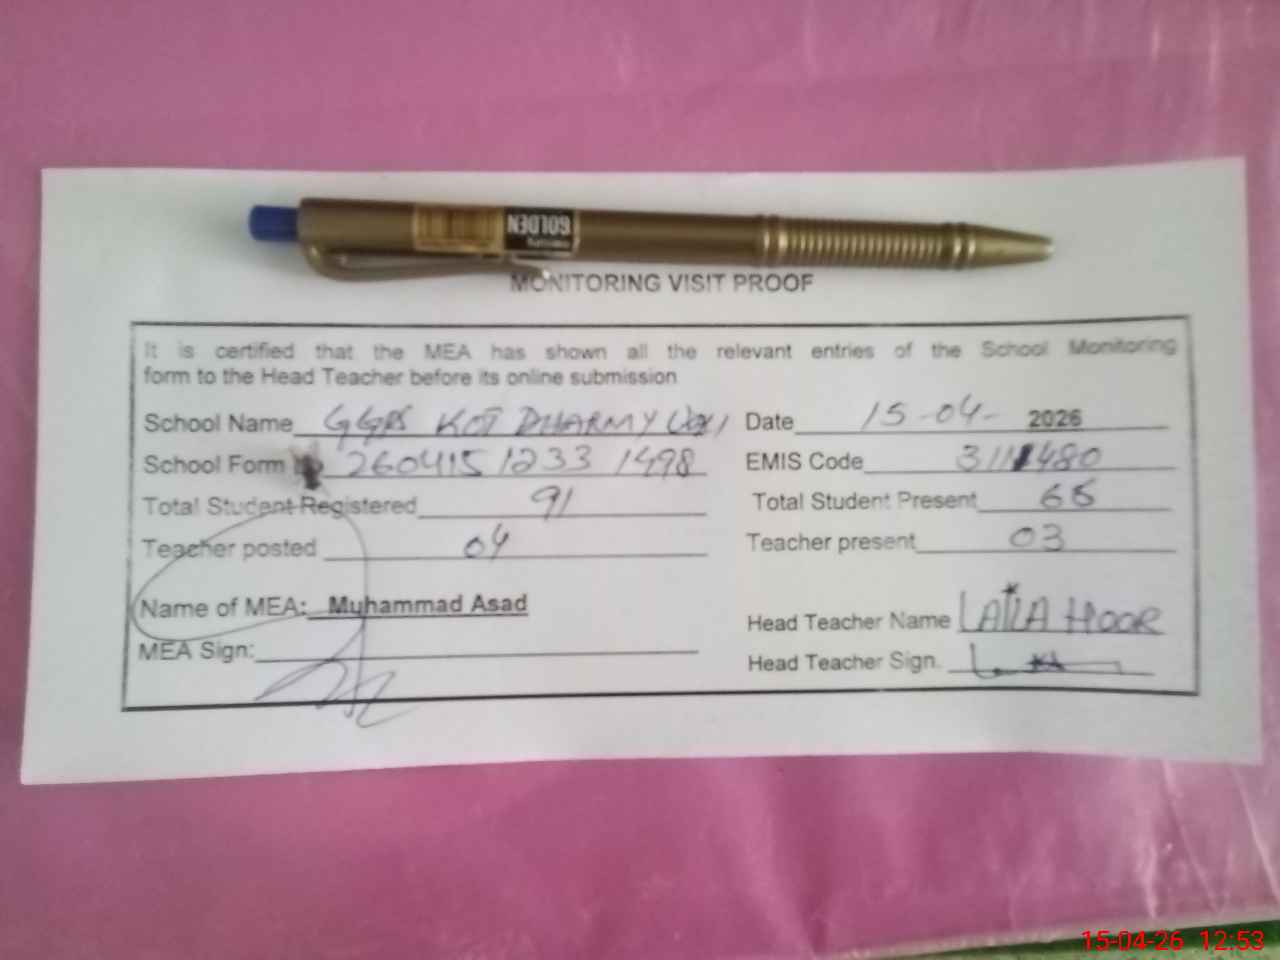 GOLDEN
MONITORING VISIT PROOF
It is certified that the MEA has shown all the relevant entries of the School Monitoring
form to the Head Teacher before its online submission
School Name GGPS KOT DHARMY Date 15-04- 2026
School Form 260415 1233 1498 EMIS Code
Total Student Registered 91 Total Student Present
Teacher posted 04 Teacher present 03
Name of MEA: Muhammad Asad
Head Teacher Name NOOR
MEA Sign:
Head Teacher Sign.
15-04-26 12:53